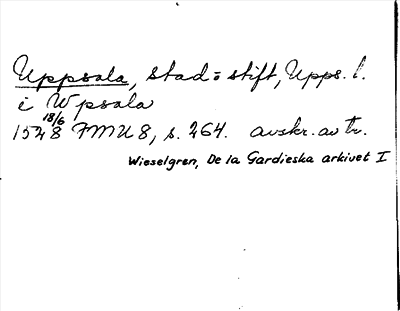 Uppsala, stad o stift, Upps. l.
i Wpsala
18/6
1528 FMU 8, s. 264. avskr. av tr.
Wieselgren, De la Gardieska arkivet I